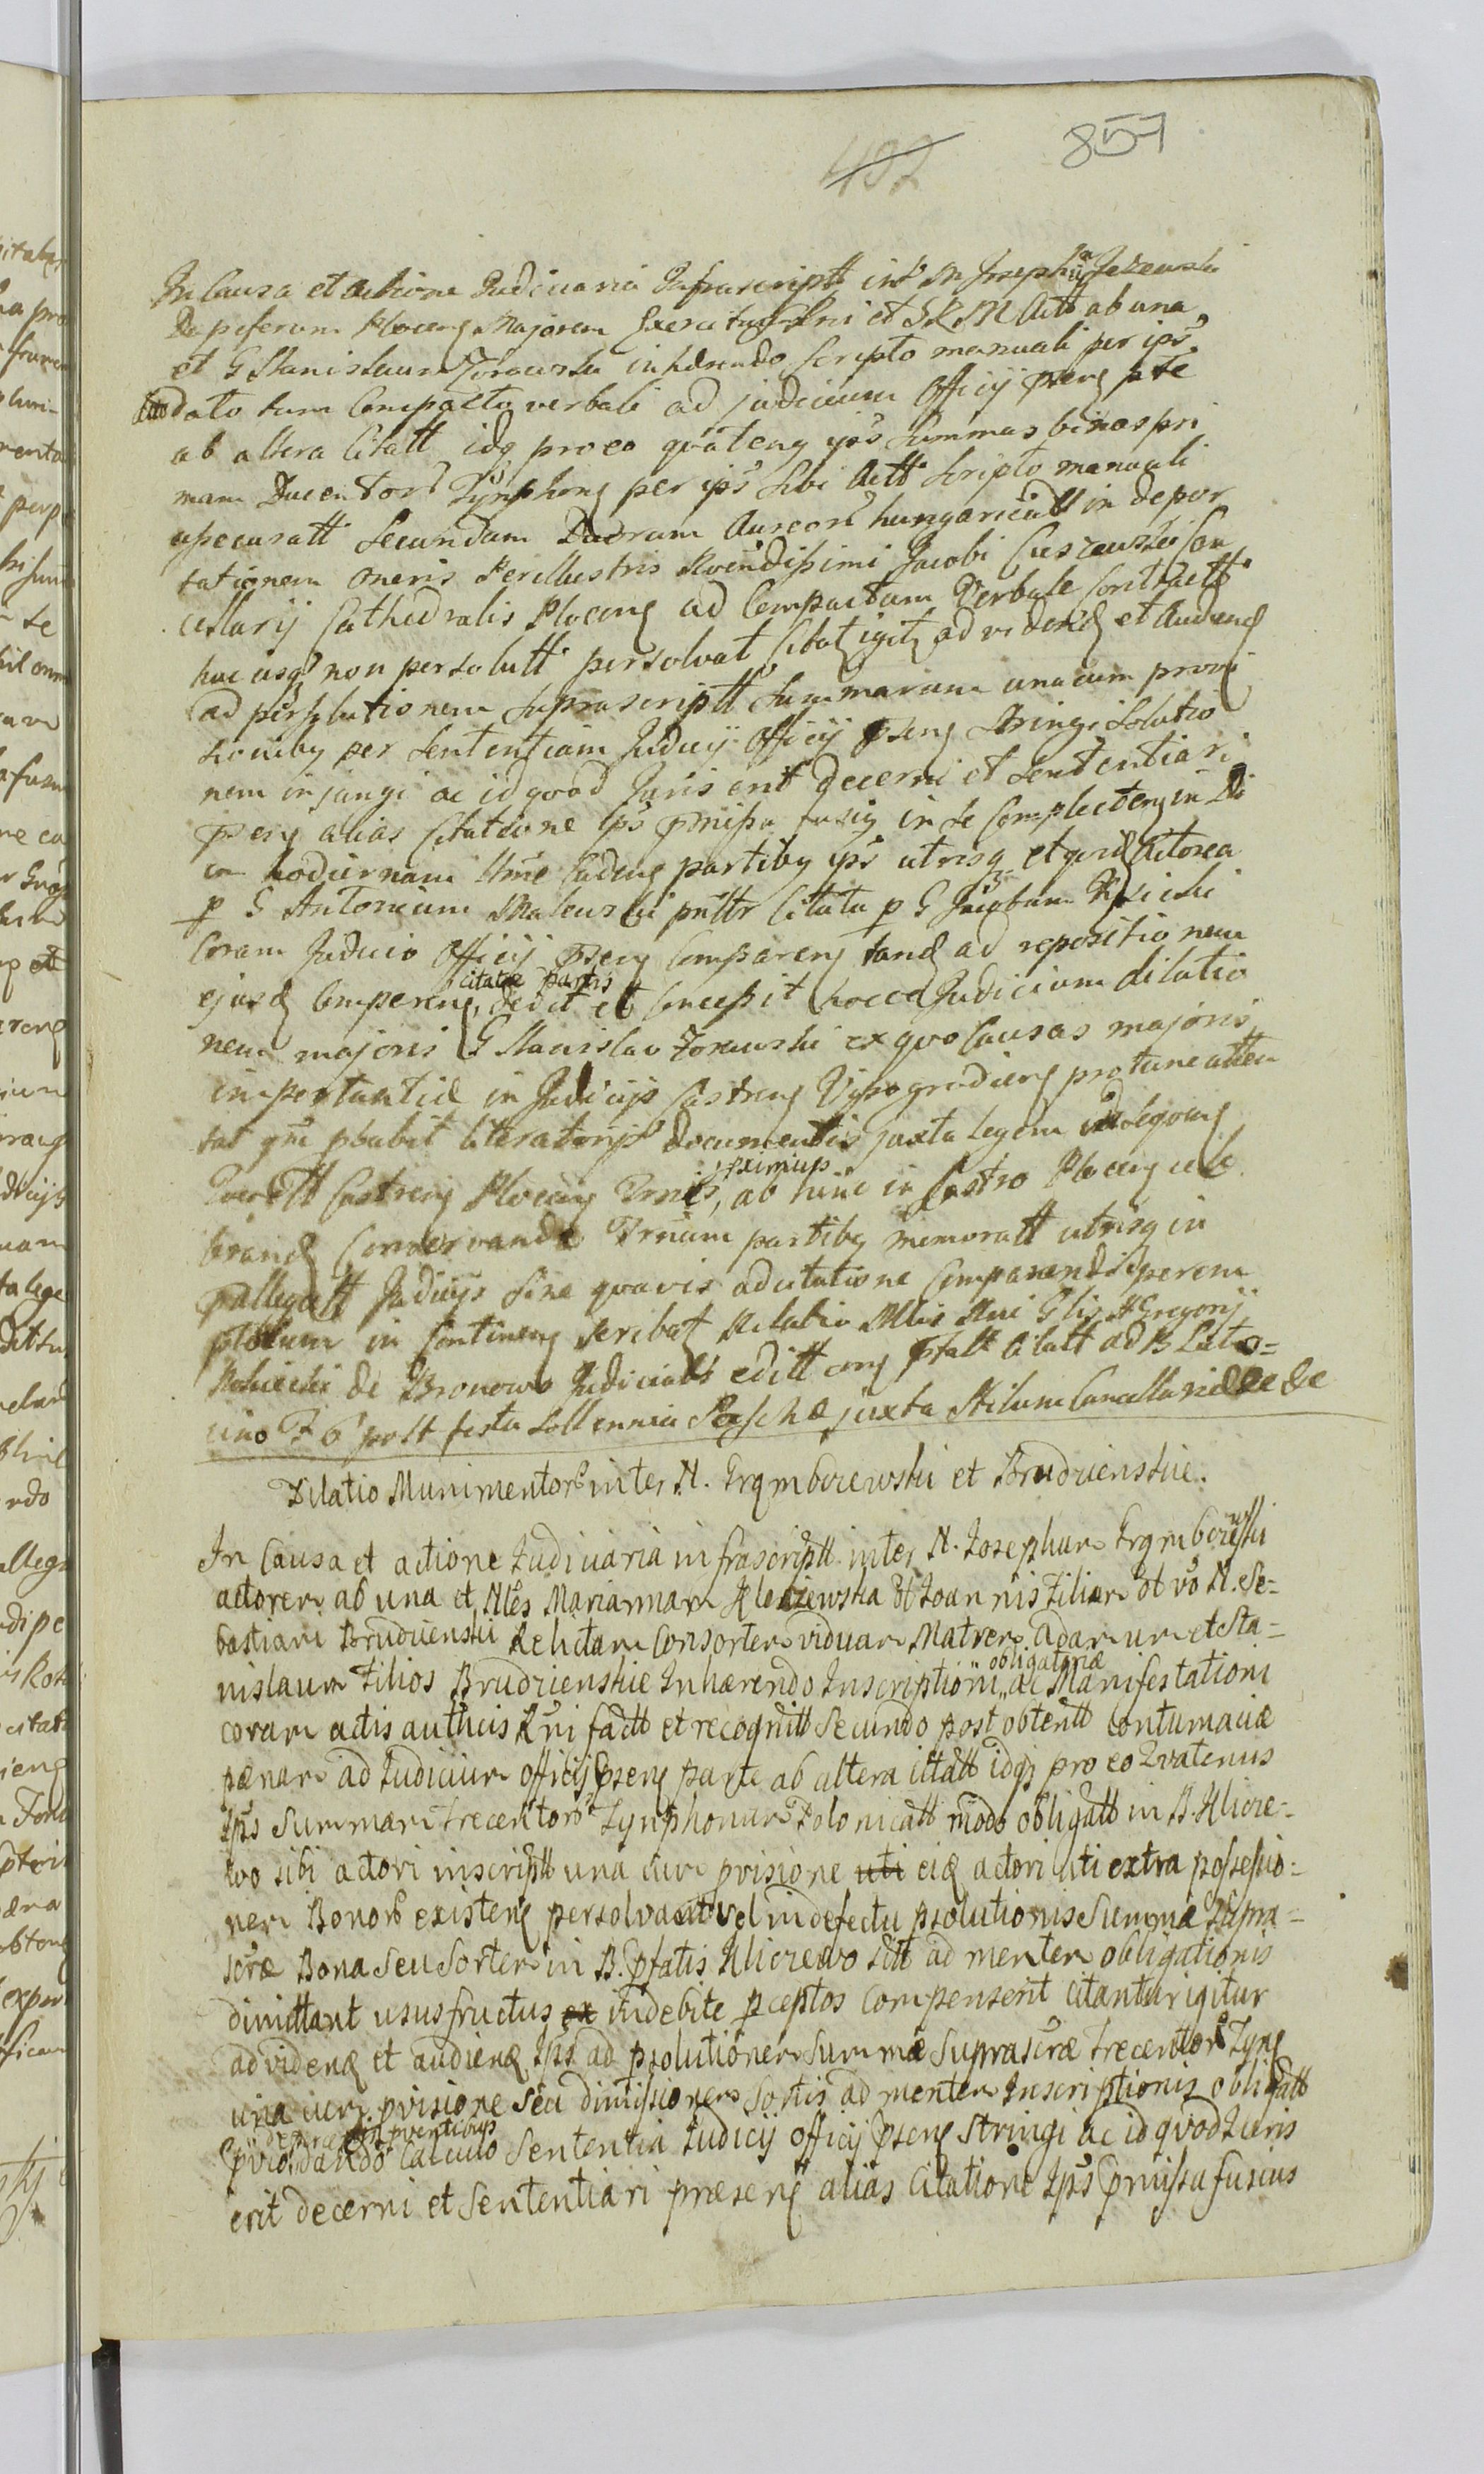 857
492
In Causa et actione Judiciaria Infrascriptt int M Joseph Jezewski
Dapiferum Plocens Majorem Exercitus et S R M Act ab una
et G Stanislaum Zorawski inhærendo Scripto manuali per ips
dato tum Compacto verbali ad judicium Officij psens pte
ab altera Citatt idq pro eo qvateng ips Summas binas pri
mam Ducentor Tynphong per ips sibi Actt Scripto manuali
assecuratt Secundam Duorum Aureor hungaricall in depor
tationem oneris Perillustris Rvendissimi Jacobi Can
cellarij Cathedralis Plocens ad Compactum Verbale Contractt
huc usq non persolutt persolvat Citat igit ad videnď et Audienď
ad persolutionem Suprascriptt Summarum una cum provi
sionibg per Sententiam Judicij Officij psens Stringi Solutio
nem injungi ac id qvod Juris erit decerni et Sententiari
psens alias Citatione Ips pmissa fusig in se Complecteng in Di
in hodiernam Cadeng partibg ips utrisq et qvid Actorea
p G Antonium Malewski pnttr Citata p G Jacobum
Coram Judicio Officij psens Compareng tand ad repositionem
ejusd Compereng, citatæ partis dedit et Concessit hocce Judicium dilatio
nem majoris G Stanislao Zorawski ex qvo Causas majoris
importantiæ in Judicijs Castrens Vyssogrodieng protunc atten
tat qm pbabit literatorijs documentis juxta legem
Castreng Ploceng Trnis, ab hinc in Castro Ploceng cele
brand Conservanda Trnum partibg memoratt utrisq in
pallegatt Judicijs Sine qvavis adcitatione Comparendi perem
ptorium in Contineng scribat Relatio Mlis Rni Glis Gregorij
de Bronowo Judicialis editt ptatt Citatt ad B Luto=
cino F 6 post festa Sollennia Paschæ juxta Stilum Cancellariæ de
Dilatio Munimentor inter N. Trąmbczewski et Brudzienskie.
In Causa et actione Judiciaria infrascriptt inter N. Josephum Trąmbczewski
actorem ab una et Nles Mariannam Kliczewska olt Joannis Filiam olt vo N. Se=
bastiani Brudzienski Relictam Consortem viduam Matrem Adamum et Sta=
nislaum Filios Brudzienskie Inhærendo Inscriptioni obligatoriæ ac Manifestationi
coram actis authcis Rni factt et recognitt Secundo post obtentt contumaciæ
pænam ad Judicium officij psens parte ab altera cittatt idq pro eo Qvatenus
Ips Summam trecentor Tynphonum Polonicatt modo obligatt in B. Klicze=
wo sibi actori inscriptt una cum pvisione uti eiď actori uti extra possessio=
nem Bonor existens persolvant vel in defectu psolutionis Summæ Supra=
scræ Bona seu Sortem in B. pfatis Kliczewo sitt ad mentem obligationis
dimittant ususfructus ex indebite pceptos Compensent Citantur igitur
ad videnď et audienď Ips ad psolutionem Summæ Suprascræ trecentor Tyng
una cum pvisione seu dimissionem Sortis ad mentem Inscriptionis obligatt
dando Calculo Sententia Judicij officij psens Stringi ac id qvod Juris
erit decerni et Sententiari præsens alias Citatione Ips pmissa fusius